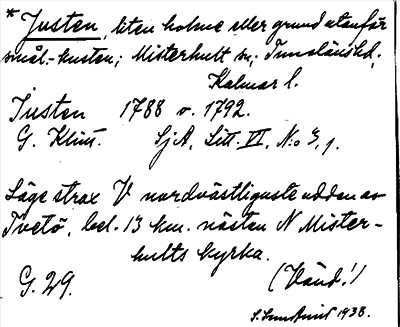 * Justen, liten holme eller grund utanför
smål.-kusten; Misterhult sn; Tunaläns hd,
Kalmar l.
Justen 1788 o. 1792.
G. Klint. SjA, Litt. VI, N:o 3, 1.
Läge strax V nordvästligaste udden av
Tvetö, bel. 13 km. nästan N Mister-
hults kyrka.
G. 29. (Vänd!)
1938.